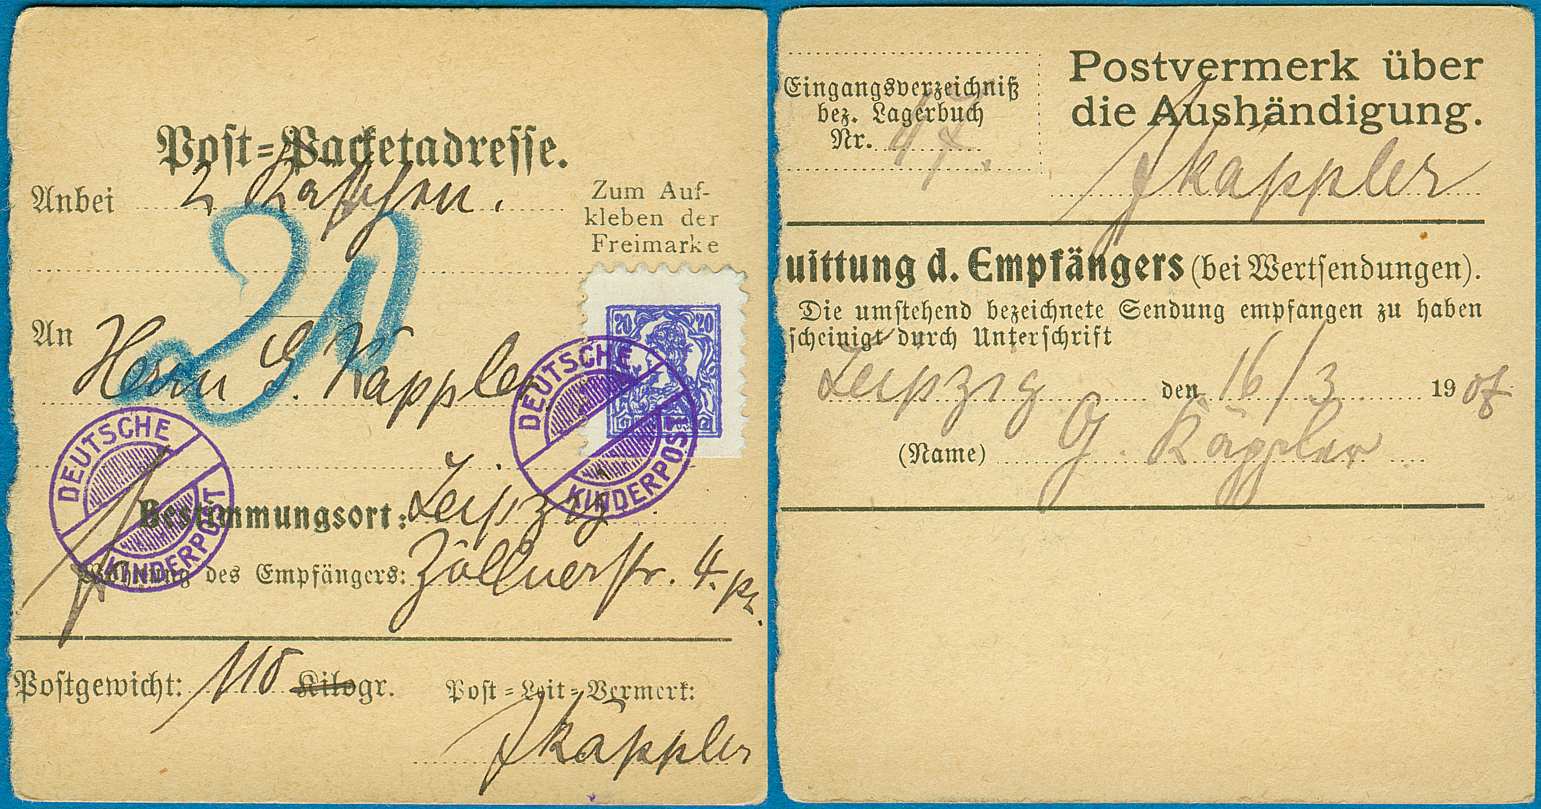 Post-Packetadresse.
Anbei 2
Zum Auf-
kleben der
Freimarke
20
20 20
An Herrn G. Käppler
DEUTSCHE
KINDERPOST
DEUTSCHE
KINDERPOST
Bestimmungsort: Leipzig
Wohnung des Empfängers: Zöllnerstr. 4. pt.
Postgewicht: 110 Kilogr. Post-Leit-Vermerk:
Jkäppler
Eingangsverzeichniß
bez. Lagerbuch
Nr. 47.
Postvermerk über
die Aushändigung.
Jkäppler
uittung d. Empfängers (bei Wertsendungen).
Die umstehend bezeichnete Sendung empfangen zu haben
scheinigt durch Unterschrift
Leipzig den 16/3 1908
(Name) G. Käppler